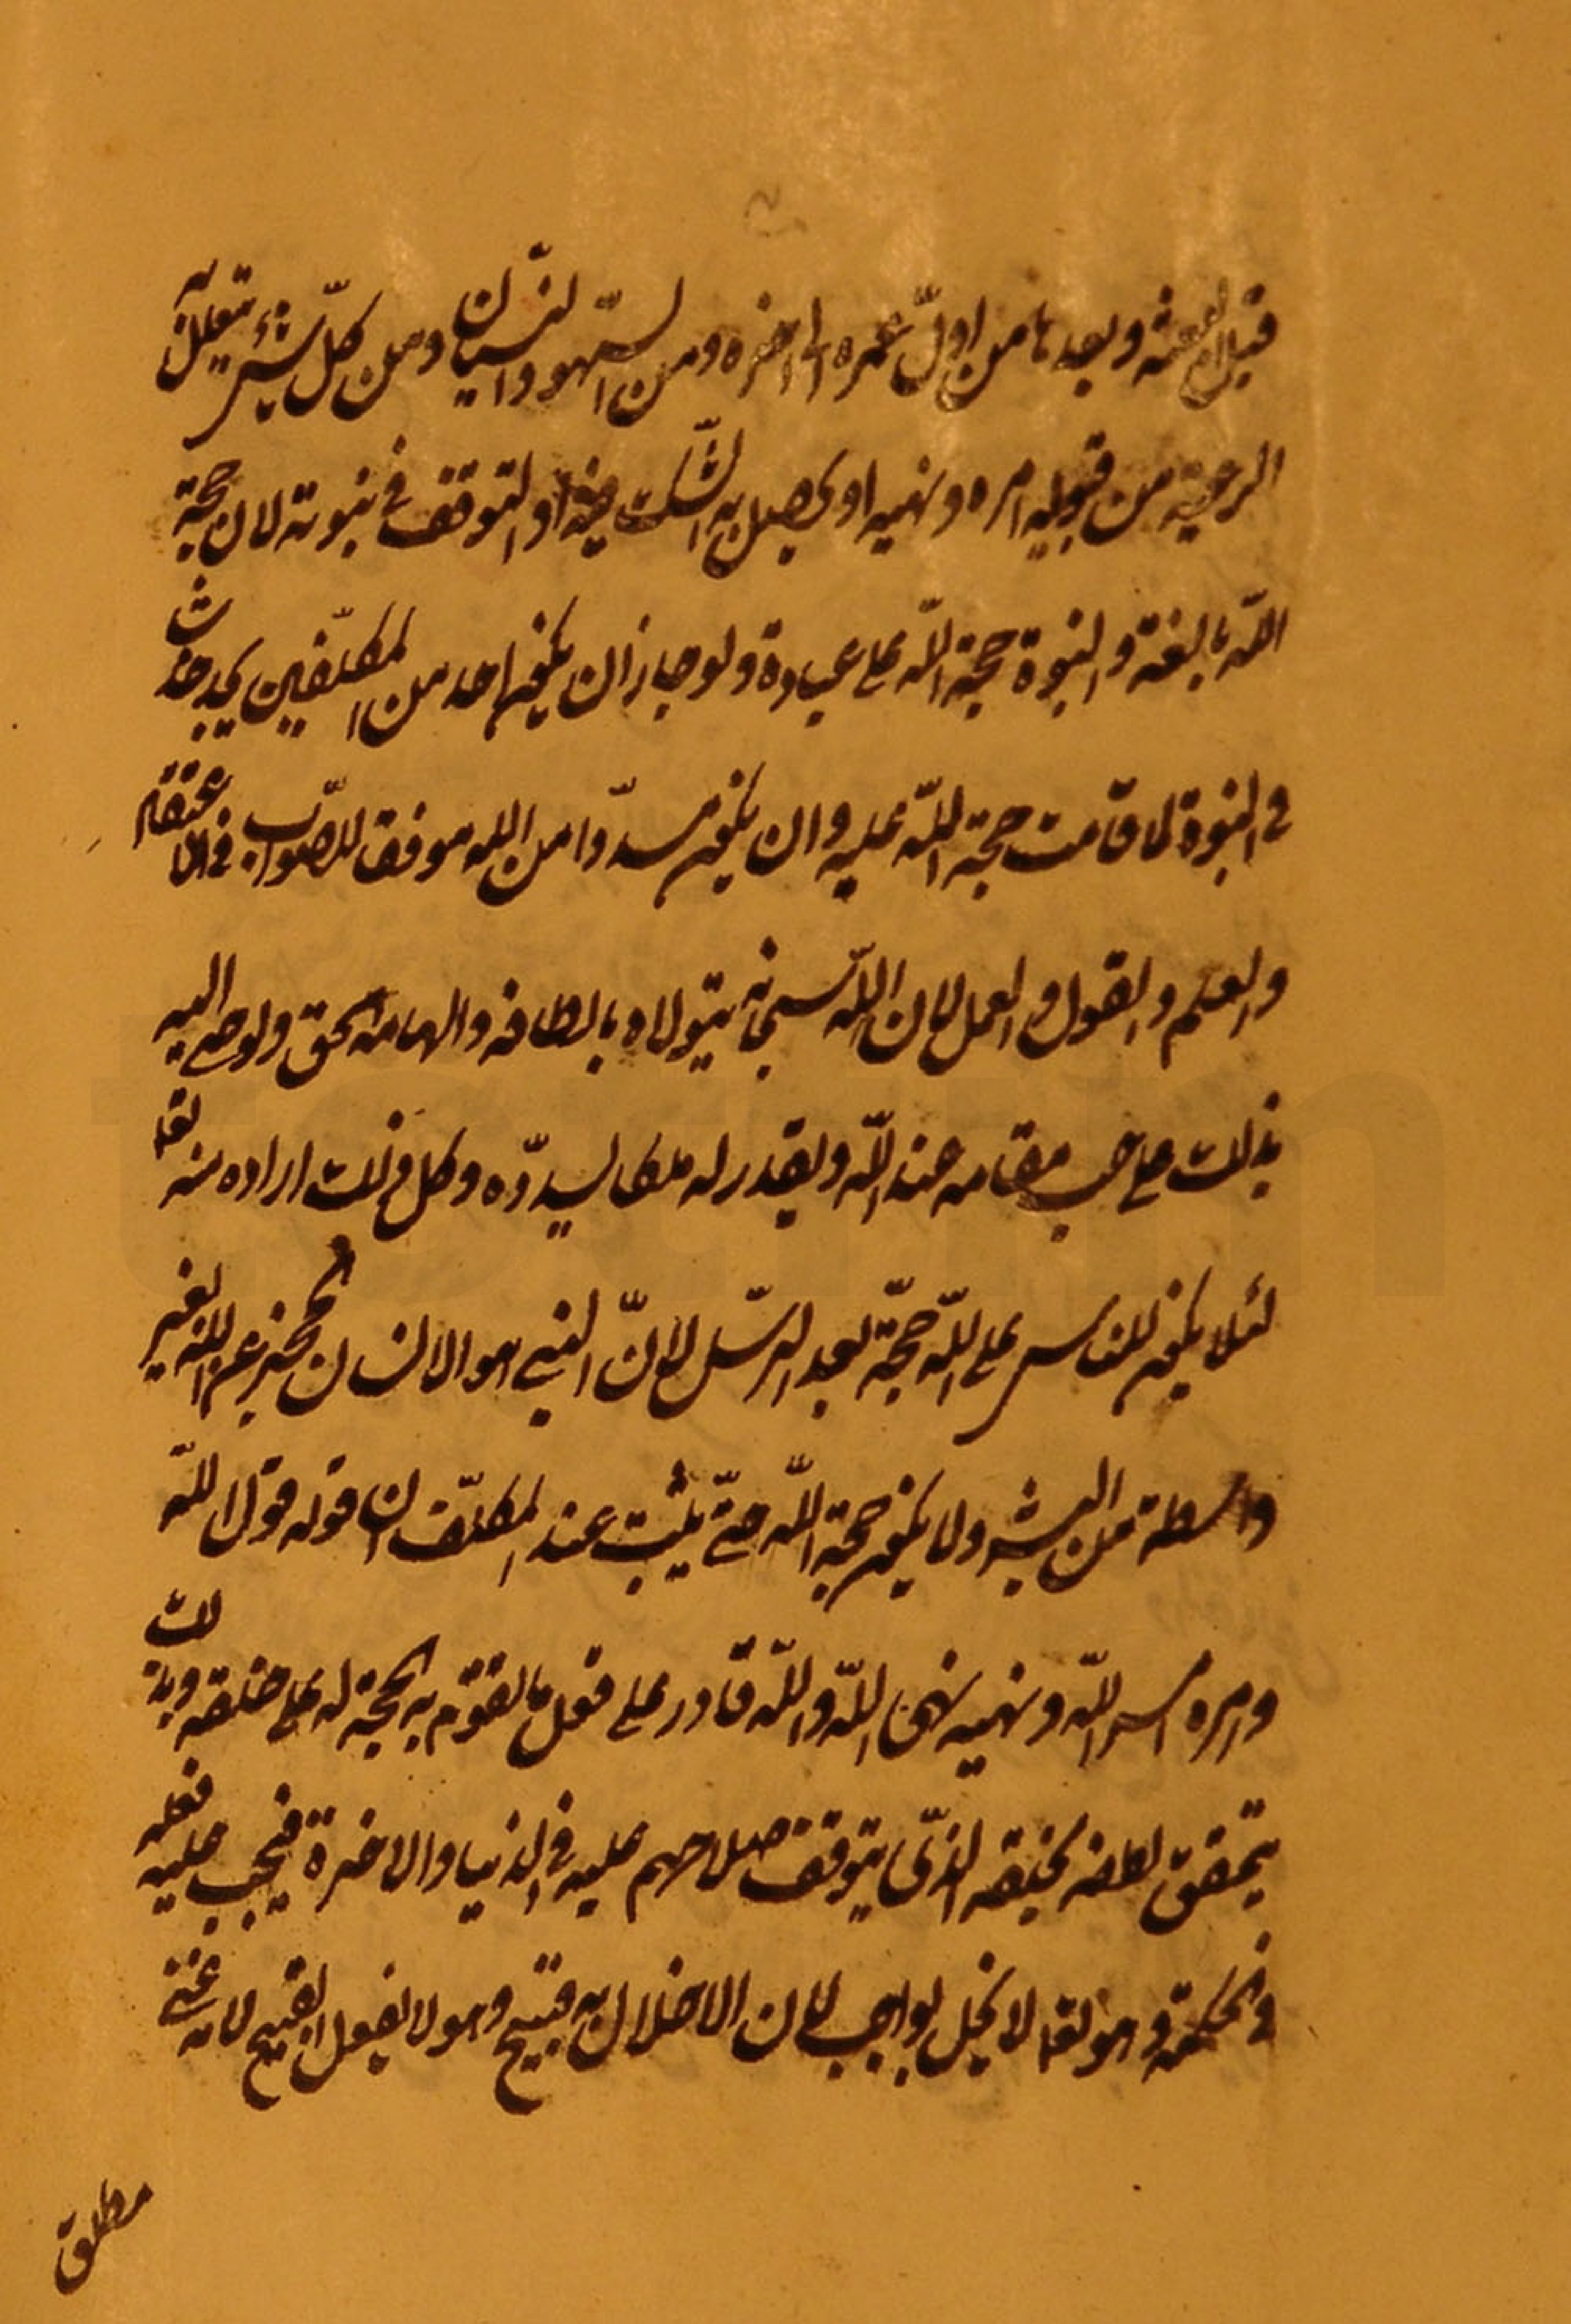 قبل البعثة وبعدها من اول عمره الى اخره ومن السّهو والنسيان ومن كلّ شئ يتعلل به
الرعية من قبوله امره ونهيه او يحصل به الشّك فيه او التوقف في نبوته لان حجة
اللّه بالغة والنبوة حجة اللّه على عباده ولو جاز ان يكون احد من المكلّفين يجد خدشا
في النبوة لما قامت حجة اللّه عليه وان يكون مسدّدا من اللّه موفقا للصّواب في الاعتقاد
والعلم والقول والعمل لان اللّه سبحانه يتولاه بالطافه والهامه الحق ويوحى اليه
بذلك على حسب مقامه عند اللّه ويقدر له ملكا يسدّده وكل ذلك اراده منه تعا
لئلا يكون للناس على اللّه حجّة بعد الرسّل لانّ النبي هو الانسان المخبر عن اللّه بغير
واسطة من البشر ولا يكون حجة اللّه حتّى يثبت عند المكلّف ان قوله قول اللّه
وامره امر اللّه ونهيه نهى اللّه واللّه قادر على فعل ما تقوم به الحجة له على خلقه وبذلك
يتحقق لطفه بخلقه الذّى يتوقف صلاحهم عليه في الدنيا والاخرة فيجب عليه فعله
في الحكمة وهو تعا لا يخل بواجب لان الاخلال به قبيح وهو لا يفعل القبيح لانه غنى
مطلق